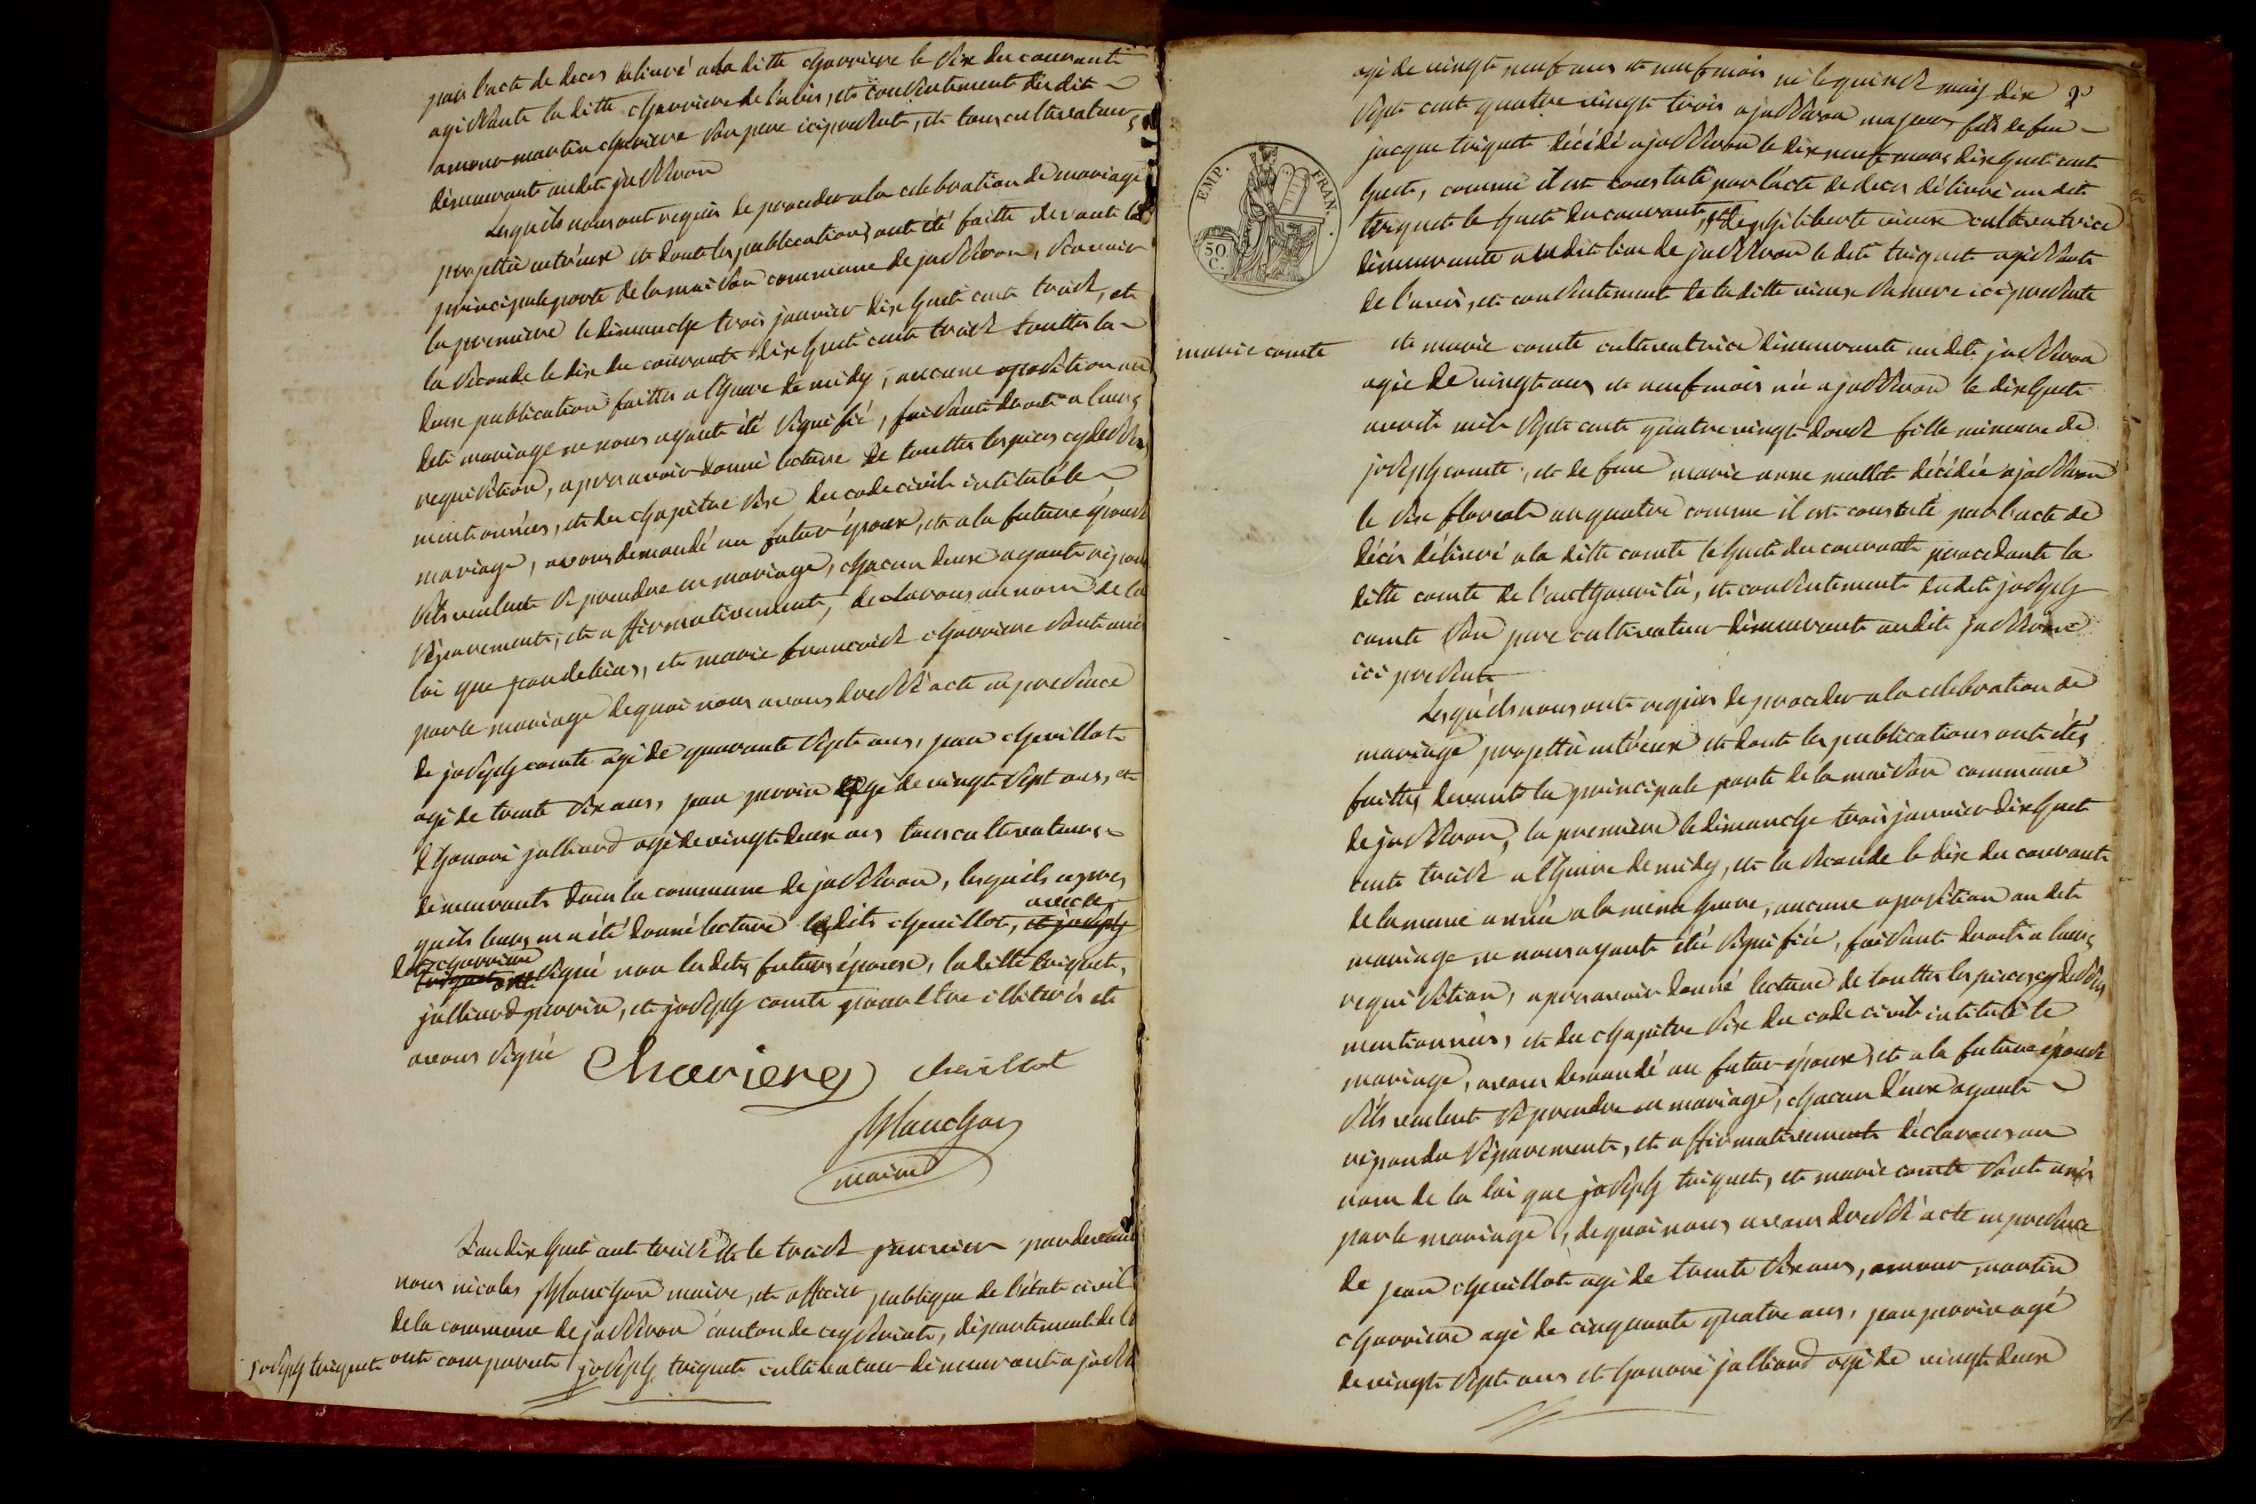 par l'acte de deces delievré a la ditte charriere le six du courant
agissante la ditte charriere de l'avis, et consentement dudit
amour martin charriere son pere ici present, et tous cultivateurs
demeurants audit jasseron
Lesquels nous ont requis de proceder a la celebration de mariage
projetté entr'eux et dont les publications ont été faitte devant la
principale porte de la maison commune de jasseron, scavoir
la premiere le dimanche trois janvier dix huit cent treise, et
la seconde le dix du courant dix huit cent treise touttes la
deux publication faittes a l'heure de midy, aucune oposition au
dit mariage ne nous ayant été signifié, faisant droit a leurs
requisition, apres avoir donné lecture de touttes les pieces cy dessus
mentionnées, et du chapitre six du code civil intitulé le
mariage, avons demandé au futur époux, et a la future épouse
s'ils veulent se prendre en mariage, chacun deux ayant répondu
séparement, et affirmativement, declarons au nom de la
loi que jean debias, et marie francoise charriere sont unis
par le mariage de quoi nous avons dressé acte en presence
de joseph comte agé de quarante sept ans, jean chevillot
agé de trente six ans, jean perrin agé de vingt sept ans, et
d'honoré julliard agé de vingt deux ans tous cultivateurs
demeurants dans la commune de jasseron, lesquels apres
avec le
qu'ils leurs en a été donné lecture lesdits chevillot, et joseph
dit charriere
triquet ont signé non lesdits futurs épouse, la ditte triquet,
julliard perrin, et joseph comte pour être illiterés et
avons signé
Charierre chevillot
Planchon
maire
L'an dix huit cent treise et le treise janvier pardevant
nous nicolas Planchon maire, et officier publique de l'état civil
de la commune de jasseron canton de ceyseriat, département de l
joseph triquet
ont comparut joseph triquet cultivateur demeurant a jass
2
agé de vingt neuf ans et neuf mois né le quinse mars dix
sept cent quatre vingt trois a jasseron majeur fils de feu
jacque triquet décédé a jasseron le dix neuf mars dix huit cent
huit, comme il est constaté par l'acte de deces délievré au dit
triquet le huit du courant, et de philiberte vieux cultivatrice
demeurante au dit lieu de jasseron le dit triquet agissant
de l'avis, et consentement de la ditte vieux sa mere ici presente
EMP. FRAN.
50 C.
marie comte
et marie comte cultivatrice demeurante audit jasseron
agée de vingt ans et neuf mois née a jasseron le dix huit
avril mil sept cent quatre vingt douse fille mineure de
joseph comte, et de feue marie anne mallet décédée a jasseron
le six floreal an quatre comme il est constaté par l'acte de
décés délievré a la ditte comte le huit du courant procedante la
ditte comte de l'authorité, et consentement du dit joseph
comte son pere cultivateur demeurant au dit jasseron
ici present
Lesquels nous ont requis de proceder a la celebration de
mariage projetté entr'eux et dont les publications ont étés
faittes devant la principale porte de la maison commune
de jasseron, la premiere le dimanche trois janvier dix huit
cent treise a l'heure de midy, et la seconde le dix du courant
de la meme année a la même heure, aucune oposition au dit
mariage ne nous ayant été signifiée, faisant droit a leurs
requisition, apres avoir donné lecture de touttes les pieces cy dessus
mentionnées, et du chapitre six du code civil intitulé le
mariage, avons demandé au futur époux, et a la future épouse
s'ils veulent se prendre en mariage, chacun d'eux ayant
répondu séparement, et affirmativement déclarons au
nom de la loi que joseph triquet, et marie comte sont unis
par le mariage, de quoi nous avons dressé acte en presence
de jean chevillot agé de trente six ans, amour martin
charriere agé de cinquante quatre ans, jean perrin agé
de vingt sept ans et honoré julliard agé de vingt deux